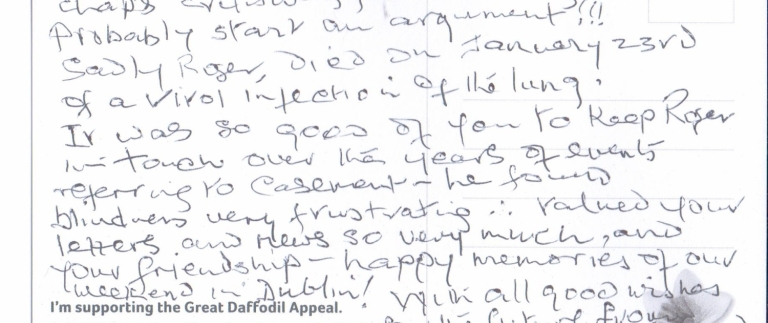 Probably start an argument!!!
Sadly Roger, died on January 23rd
of a viral infection of the lung.
It was so good of you to keep Roger
in touch over the years of events
referring to Casement – he found
blindness very frustrating ∴ valued your
letters and news so very much, and
your friendship – happy memories of our
weekend in Dublin! With all good wishes
I'm supporting the Great Daffodil Appeal.
from